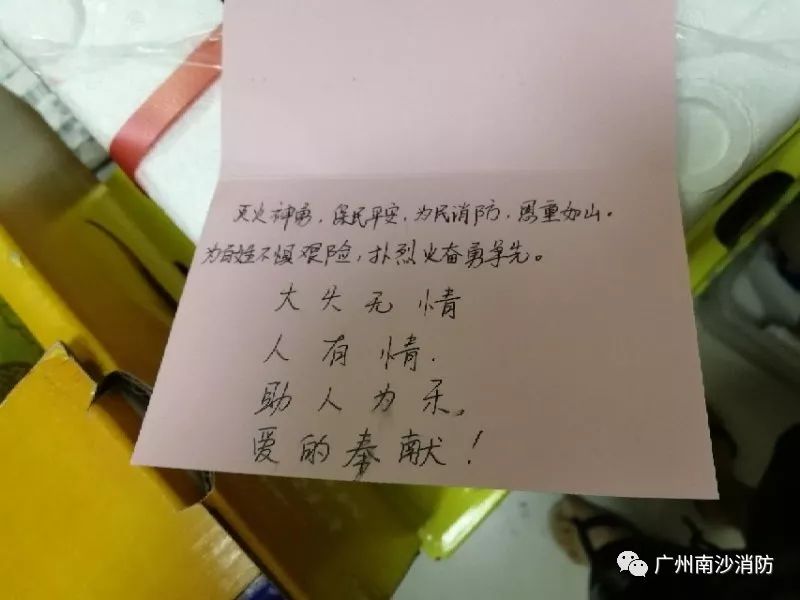 灭火神勇，保民平安，为民消防，恩重如山。
为百姓不惧艰险，扑烈火奋勇争先。
大火无情
人有情.
助人为乐。
爱的奉献！
广州南沙消防